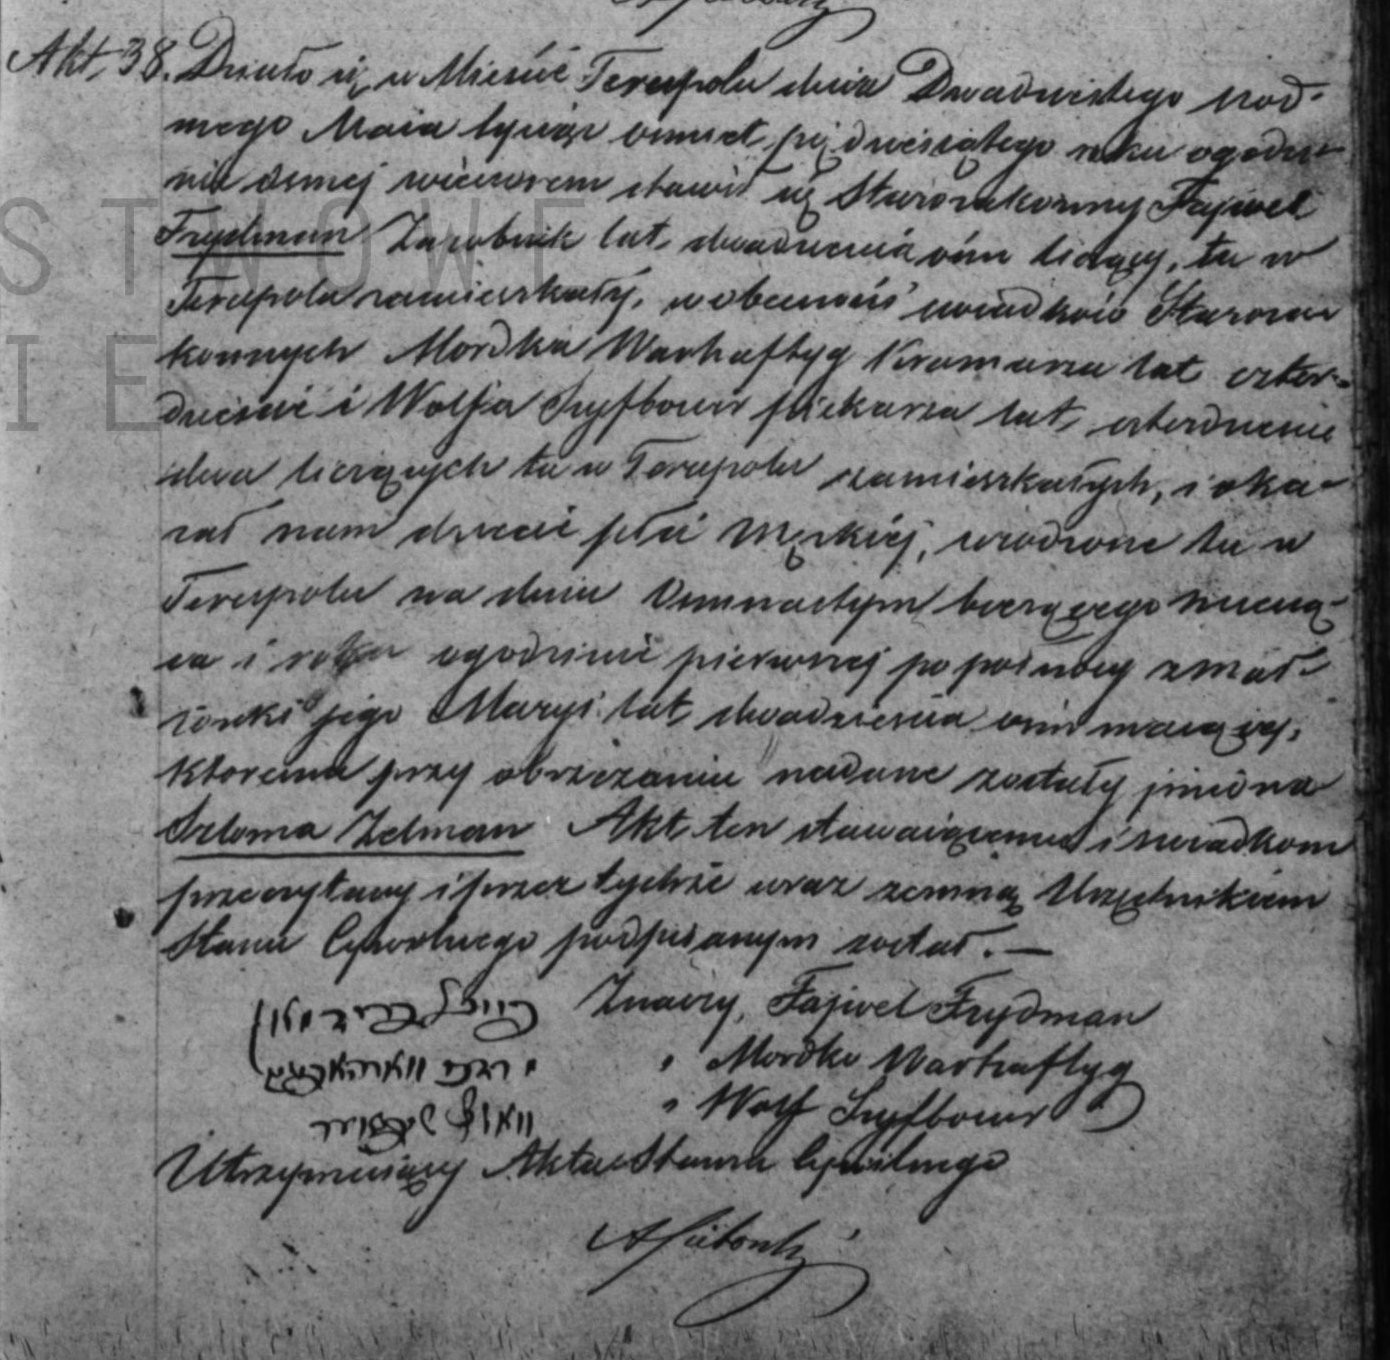 Akt. 38. Działo się w Mieście Terespolu dnia Dwudziestego siód-
mego Maia tysiąc ośmset pięćdziesiątego roku ogodzi-
nie ósmej wieczorem stawił się Starozakonny Fajwel
Frydman Zarobnik lat dwadzieścia ośm liczący, tu w
Terespolu zamieszkały, w obecności świadków Staroza-
konnych Mordka Warhaftyg Kramarza lat czter-
dzieście i Wolfa Szyfbouer piekarza lat czterdzieście
dwa liczących tu w Terespolu zamieszkałych, i oka-
zał nam dziecie płci Męskiéj, urodzone tu w
Terespolu na dniu Ośmnastym bieżącego miesią-
ca i roku ogodzinie pierwszej po pólnocy z mał-
żonki jego Maryi lat dwadzieścia ośm maiącej,
któremu przy obrzezaniu nadane zostały jmiona
Szloma Zelman Akt ten stawaiącemu i świadkom
przeczytany i przez tychże wraz zemną Urzędnikiem
Stanu Cywilnego podpisanym został. —
פייוול פרידמאן Znaczy, Fajwel Frydman
מרדכי ווארהאפטיג " Mordko Warhaftyg
וואלף " Wolf Szyfbouer
Utrzymuiący Akta Stanu Cywilnego